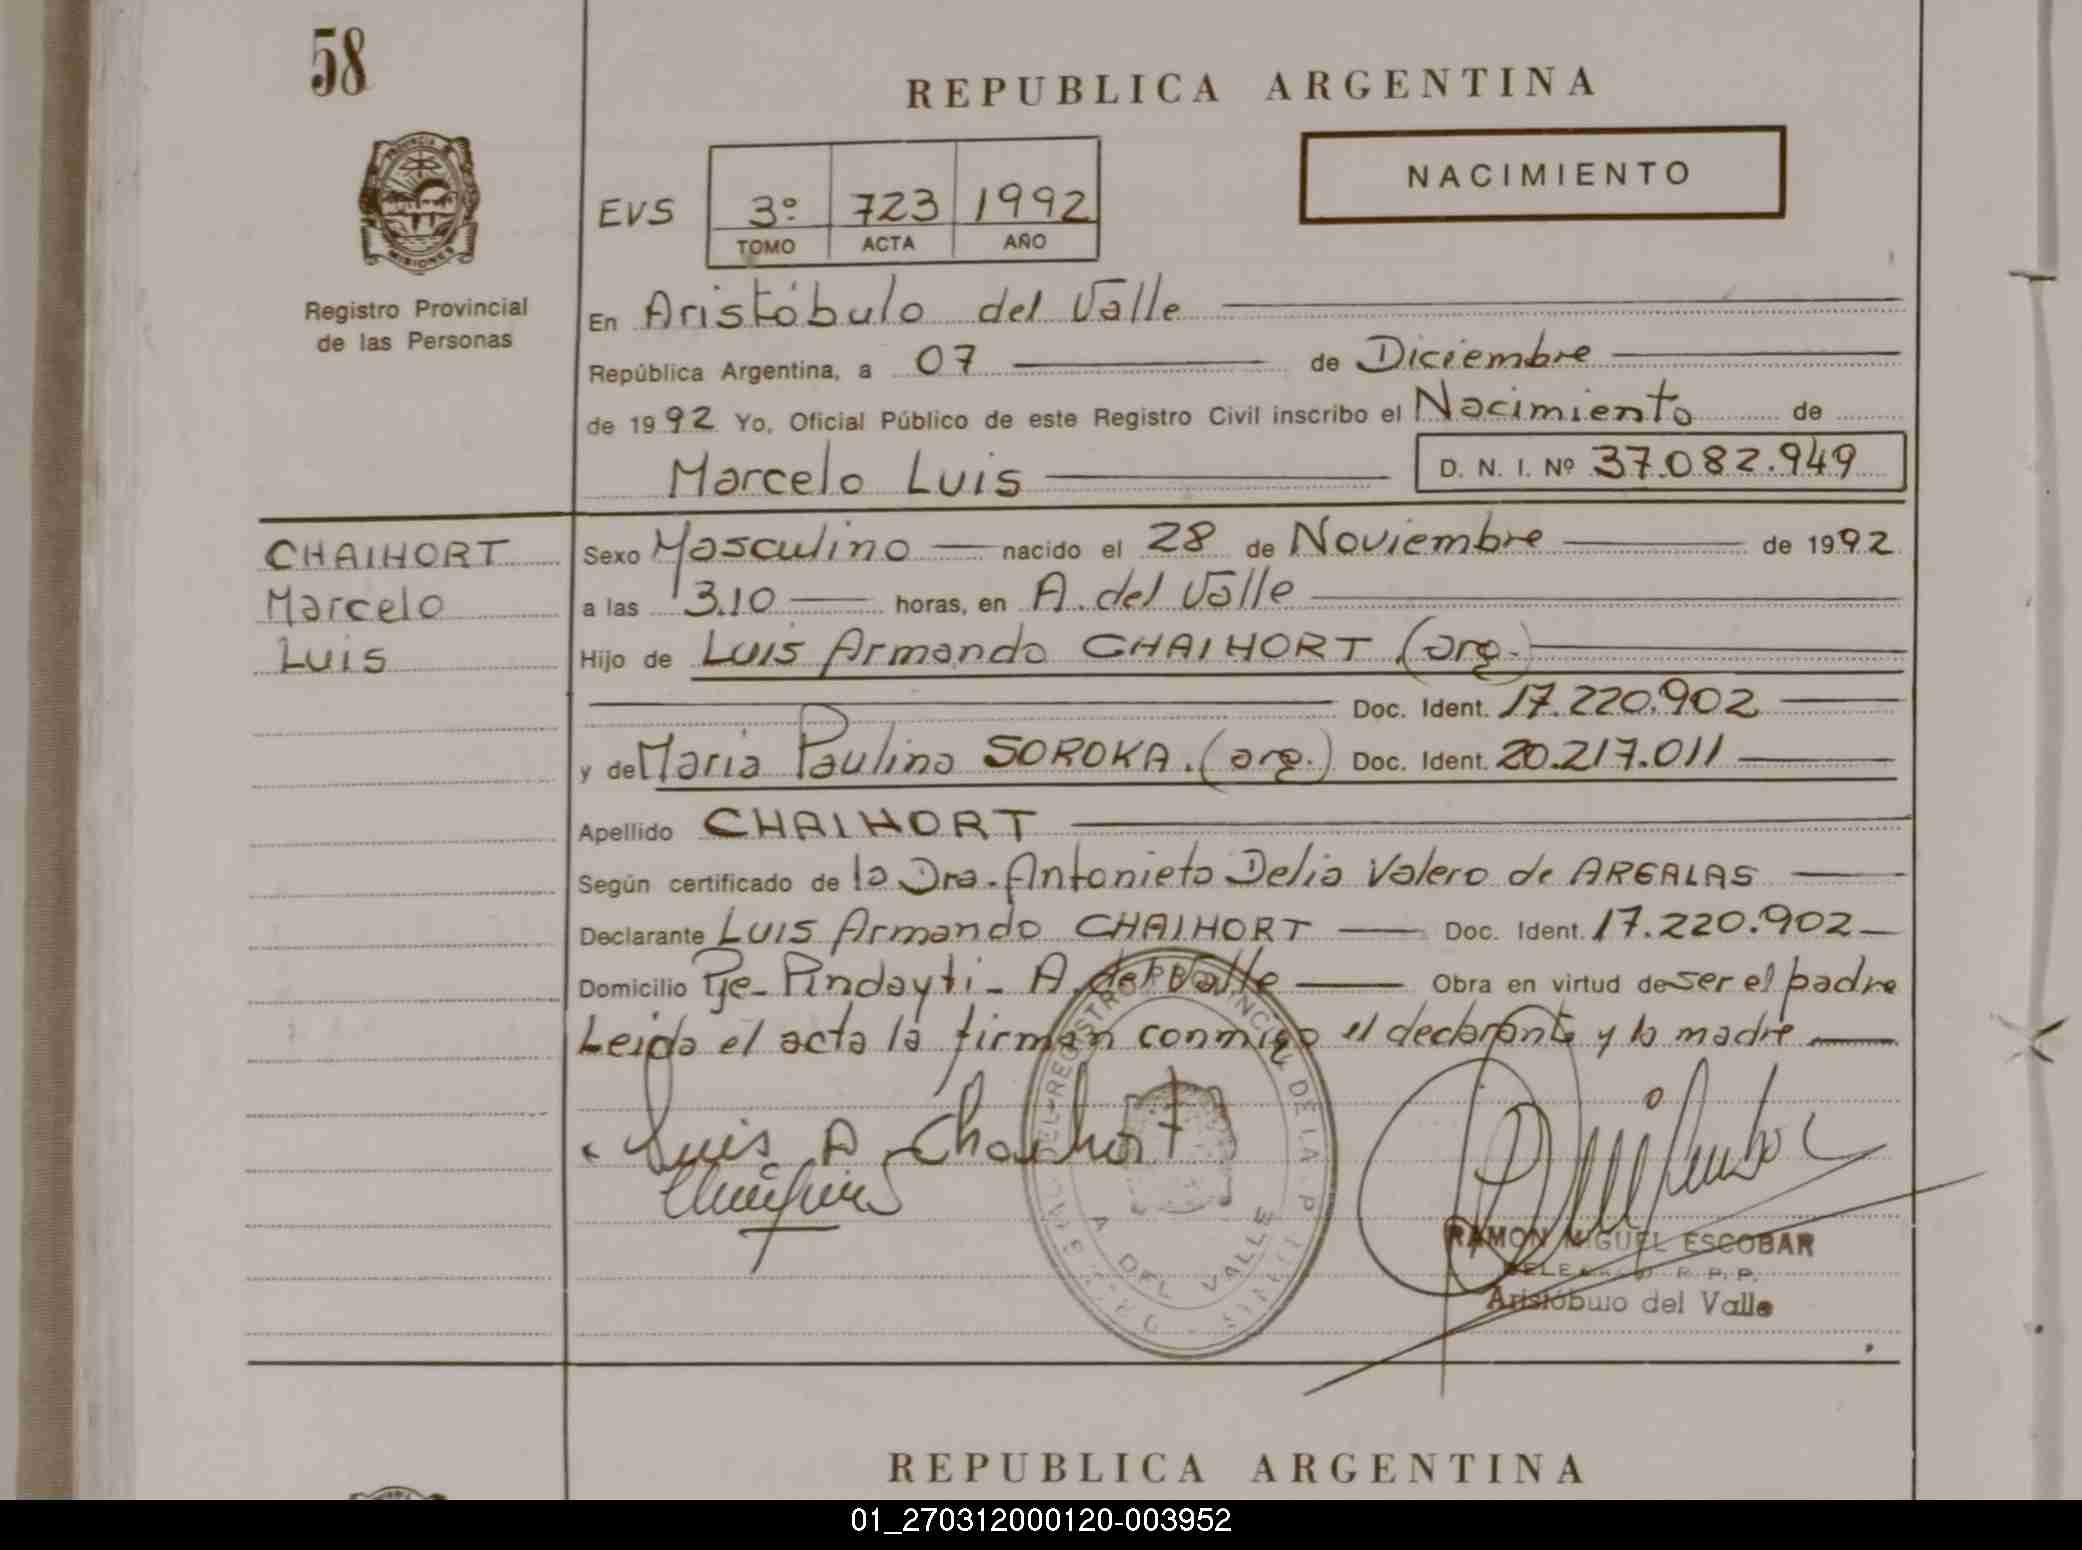 58
REPUBLICA ARGENTINA
NACIMIENTO
EVS 3º 723 1992
TOMO ACTA AÑO
PROVINCIA
MISIONES
Registro Provincial
de las Personas
En Aristóbulo del Valle
República Argentina, a 07 de Diciembre
de 1992 Yo, Oficial Público de este Registro Civil inscribo el Nacimiento de
Marcelo Luis D. N. I. Nº 37.082.949
CHAIHORT
Marcelo
Luis
Sexo Masculino nacido el 28 de Noviembre de 1992
a las 3.10 horas, en A. del Valle
Hijo de Luis Armando CHAIHORT (arg.)
Doc. Ident. 17.220.902
y de Maria Paulina SOROKA. (arg.) Doc. Ident. 20.217.011
Apellido CHAIHORT
Según certificado de la Dra. Antonieta Delia Valero de AREALAS
Declarante Luis Armando CHAIHORT Doc. Ident. 17.220.902
Domicilio Pje- Pindayti - A. del Valle Obra en virtud de ser el padre
Leida el acta la firman conmigo el declarante y la madre
Luis A Chaihort
REGISTRO PROVINCIAL DE LA
A DEL VALLE
RAMON MIGUEL ESCOBAR
R. P. P.
Aristóbulo del Valle
REPUBLICA ARGENTINA
01_270312000120-003952